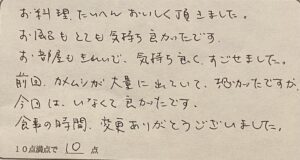 お料理、たいへんおいしく頂きました。
お風呂もとても気持ち良かったです。
お部屋もきれいで、気持ち良く、すごせました。
前回、カメムシが大量に出ていて、恐かったですが、
今回は、いなくて良かったです。
食事の時間、変更ありがとうございました。
10点満点で 10 点